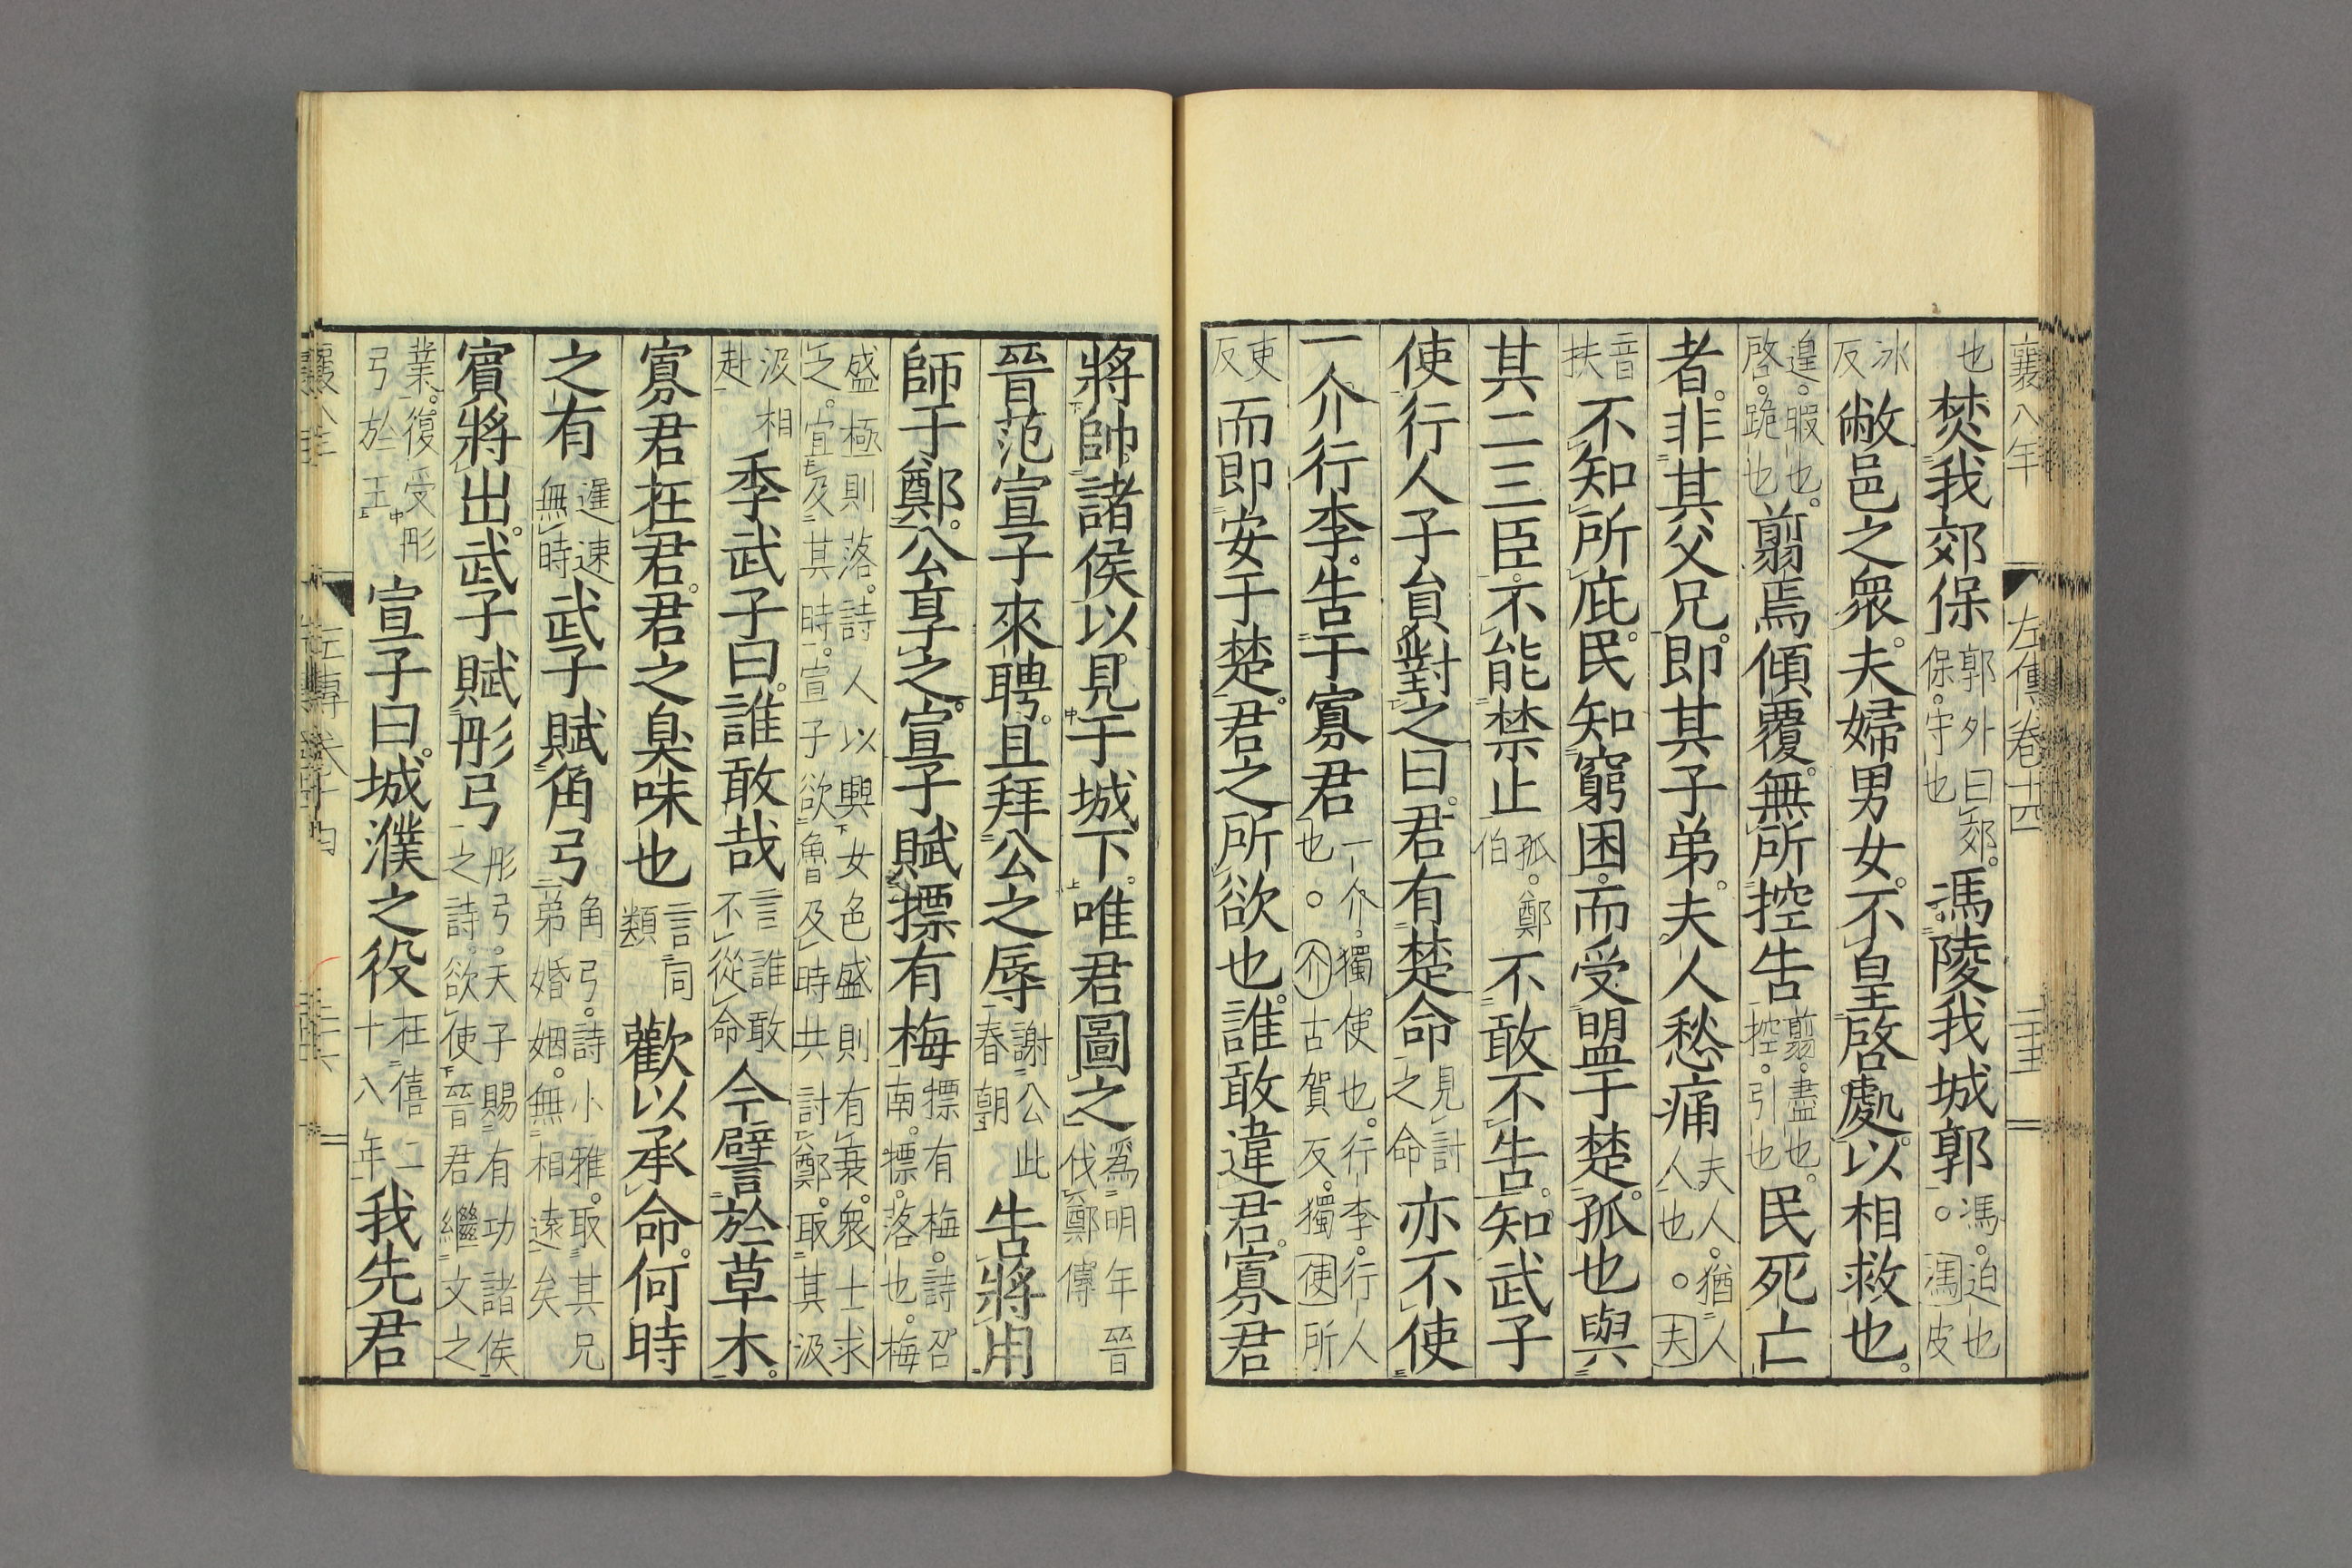 襄八年 左傳卷十四 二十五
也焚我郊保郭外曰郊。保。守也馮陵我城郭馮。迫也。馮皮
冰反敝邑之衆。夫婦男女。不皇啓處。以相救也。
遑。暇也。啓。跪也翦焉傾覆。無所控告翦。盡也。控。引也民死亡
者。非其父兄。即其子弟。夫人愁痛夫人。猶人人也。夫
音扶不知所庇。民知窮困。而受盟于楚。孤也與
其二三臣。不能禁止孤。鄭伯不敢不告。知武子
使行人子員對之曰。君有楚命見討之命亦不使
一介行李。告于寡君一介。獨使也。行李。行人也。介古賀反。獨使所
吏反而即安于楚。君之所欲也。誰敢違君。寡君
將帥諸侯以見于城下。唯君圖之爲明年晉伐鄭傳
晉范宣子來聘。且拜公之辱謝公此春朝告將用
師于鄭。公享之。宣子賦摽有梅摽有梅。詩召南。摽。落也。梅
盛極則落。詩人以興女色盛則有衰。衆士求之。宜及其時。宣子欲魯及時共討鄭。取其汲
汲相赴季武子曰。誰敢哉言誰敢不從命今譬於草木。
寡君在君。君之臭味也言同類歡以承命。何時
之有遲速無時武子賦角弓角弓。詩小雅。取其兄弟婚姻。無相遠矣
賓將出。武子賦彤弓彤弓。天子賜有功諸侯之詩。欲使晉君繼文之
業。復受彤弓於王宣子曰。城濮之役在僖二十八年我先君
襄八年 左傳卷十四